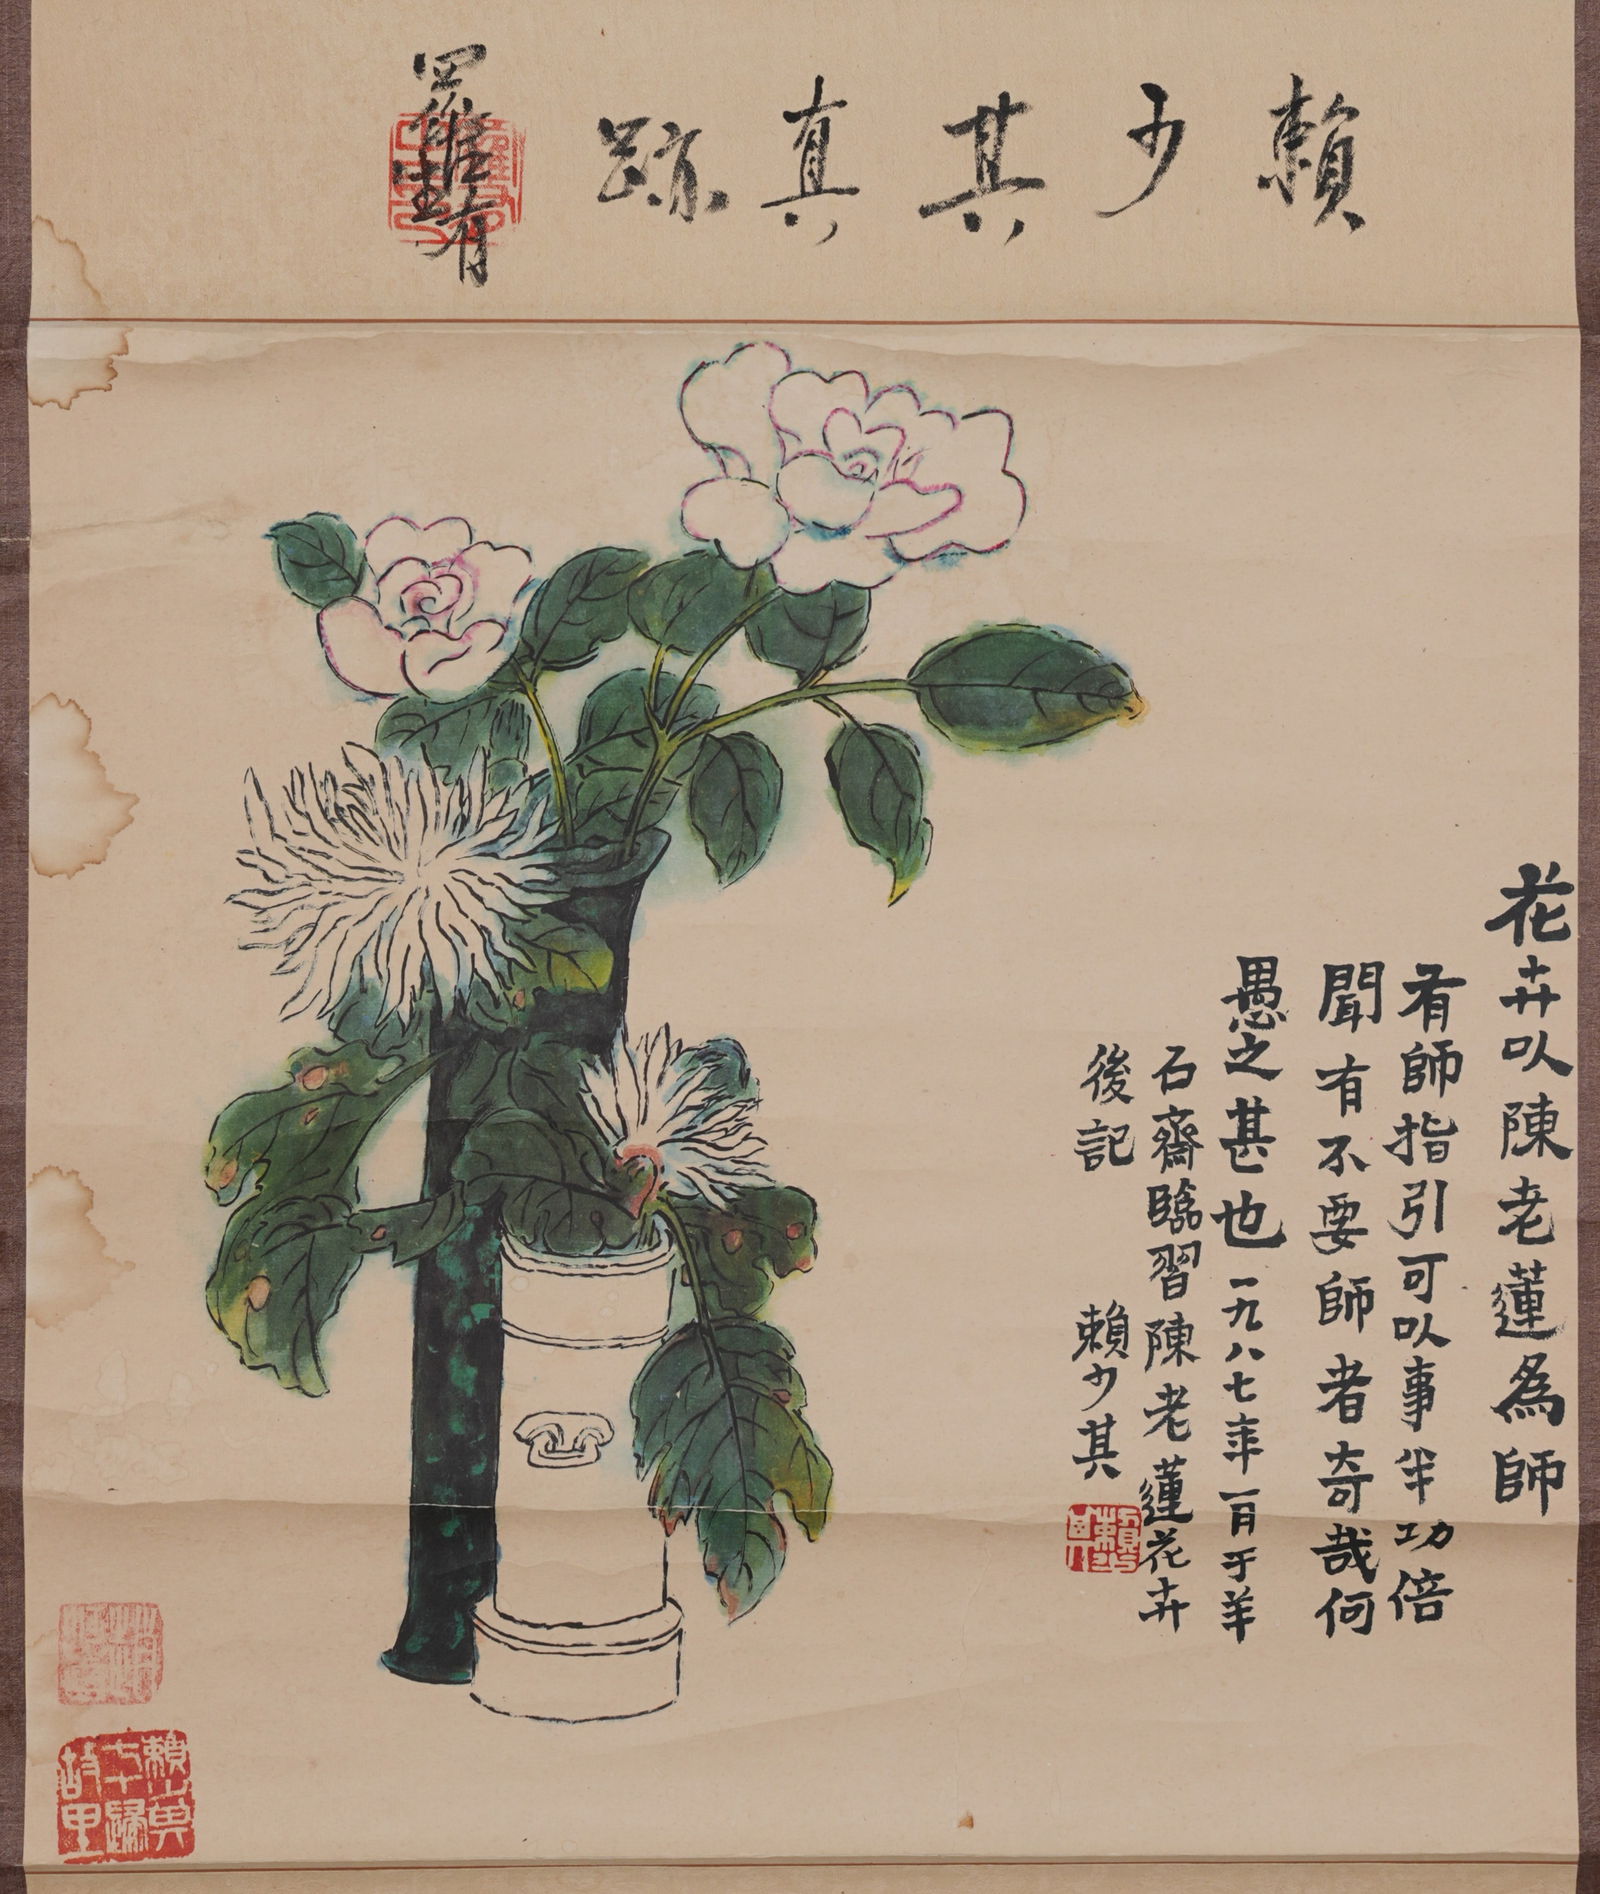 賴少其真跡
羅繼有
花卉以陳老蓮為師
有師指引可以事半功倍
聞有不要師者奇哉何
愚之甚也一九八七年一月于羊
石齋臨習陳老蓮花卉
後記
賴少其
賴少其
七十歸
故里